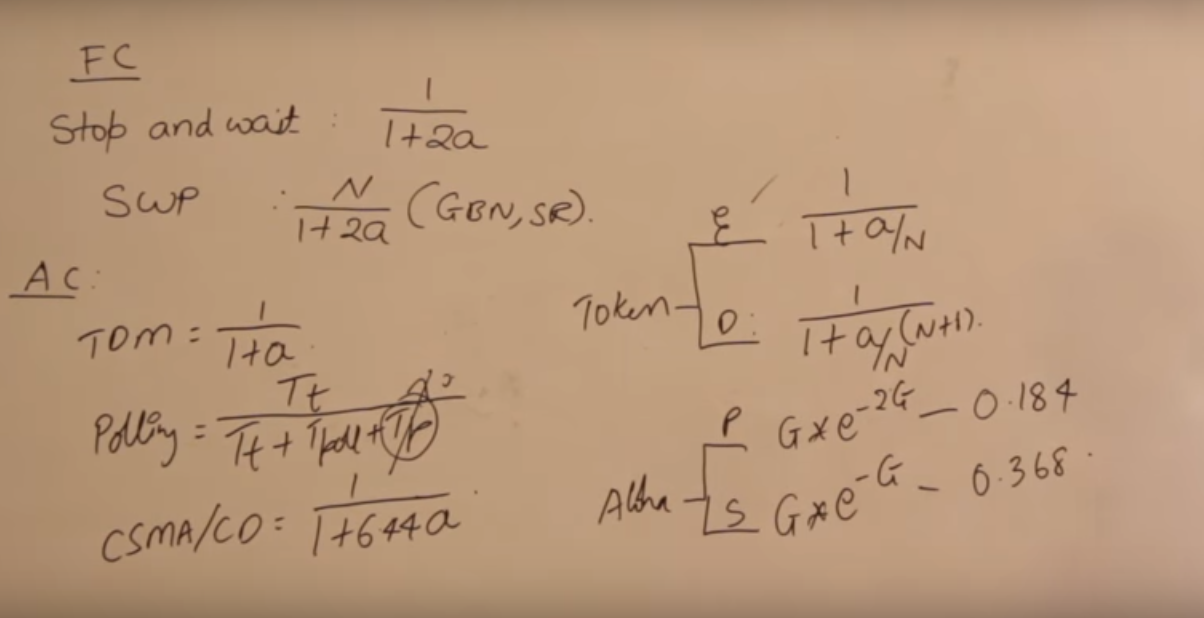 FC
Stop and wait : 1/(1+2a)
SWP : N/(1+2a) (GBN, SR).
AC:
TDM = 1/(1+a)
Polling = Tt/(Tt + Tpoll + Tp)
CSMA/CD = 1/(1+6.44a)
Token
E 1/(1+a/N)
D: 1/(1+a/N(N+1)).
P G*e^-2G — 0.184
S G*e^-G — 0.368